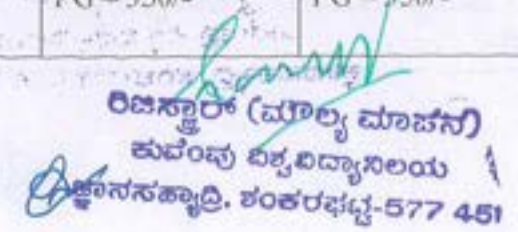 PG – 550/- PG – 550/-
ರಿಜಿಸ್ಟ್ರಾರ್ (ಮೌಲ್ಯ ಮಾಪನ)
ಕುವೆಂಪು ವಿಶ್ವವಿದ್ಯಾನಿಲಯ
ಜ್ಞಾನಸಹ್ಯಾದ್ರಿ, ಶಂಕರಘಟ್ಟ-577 451